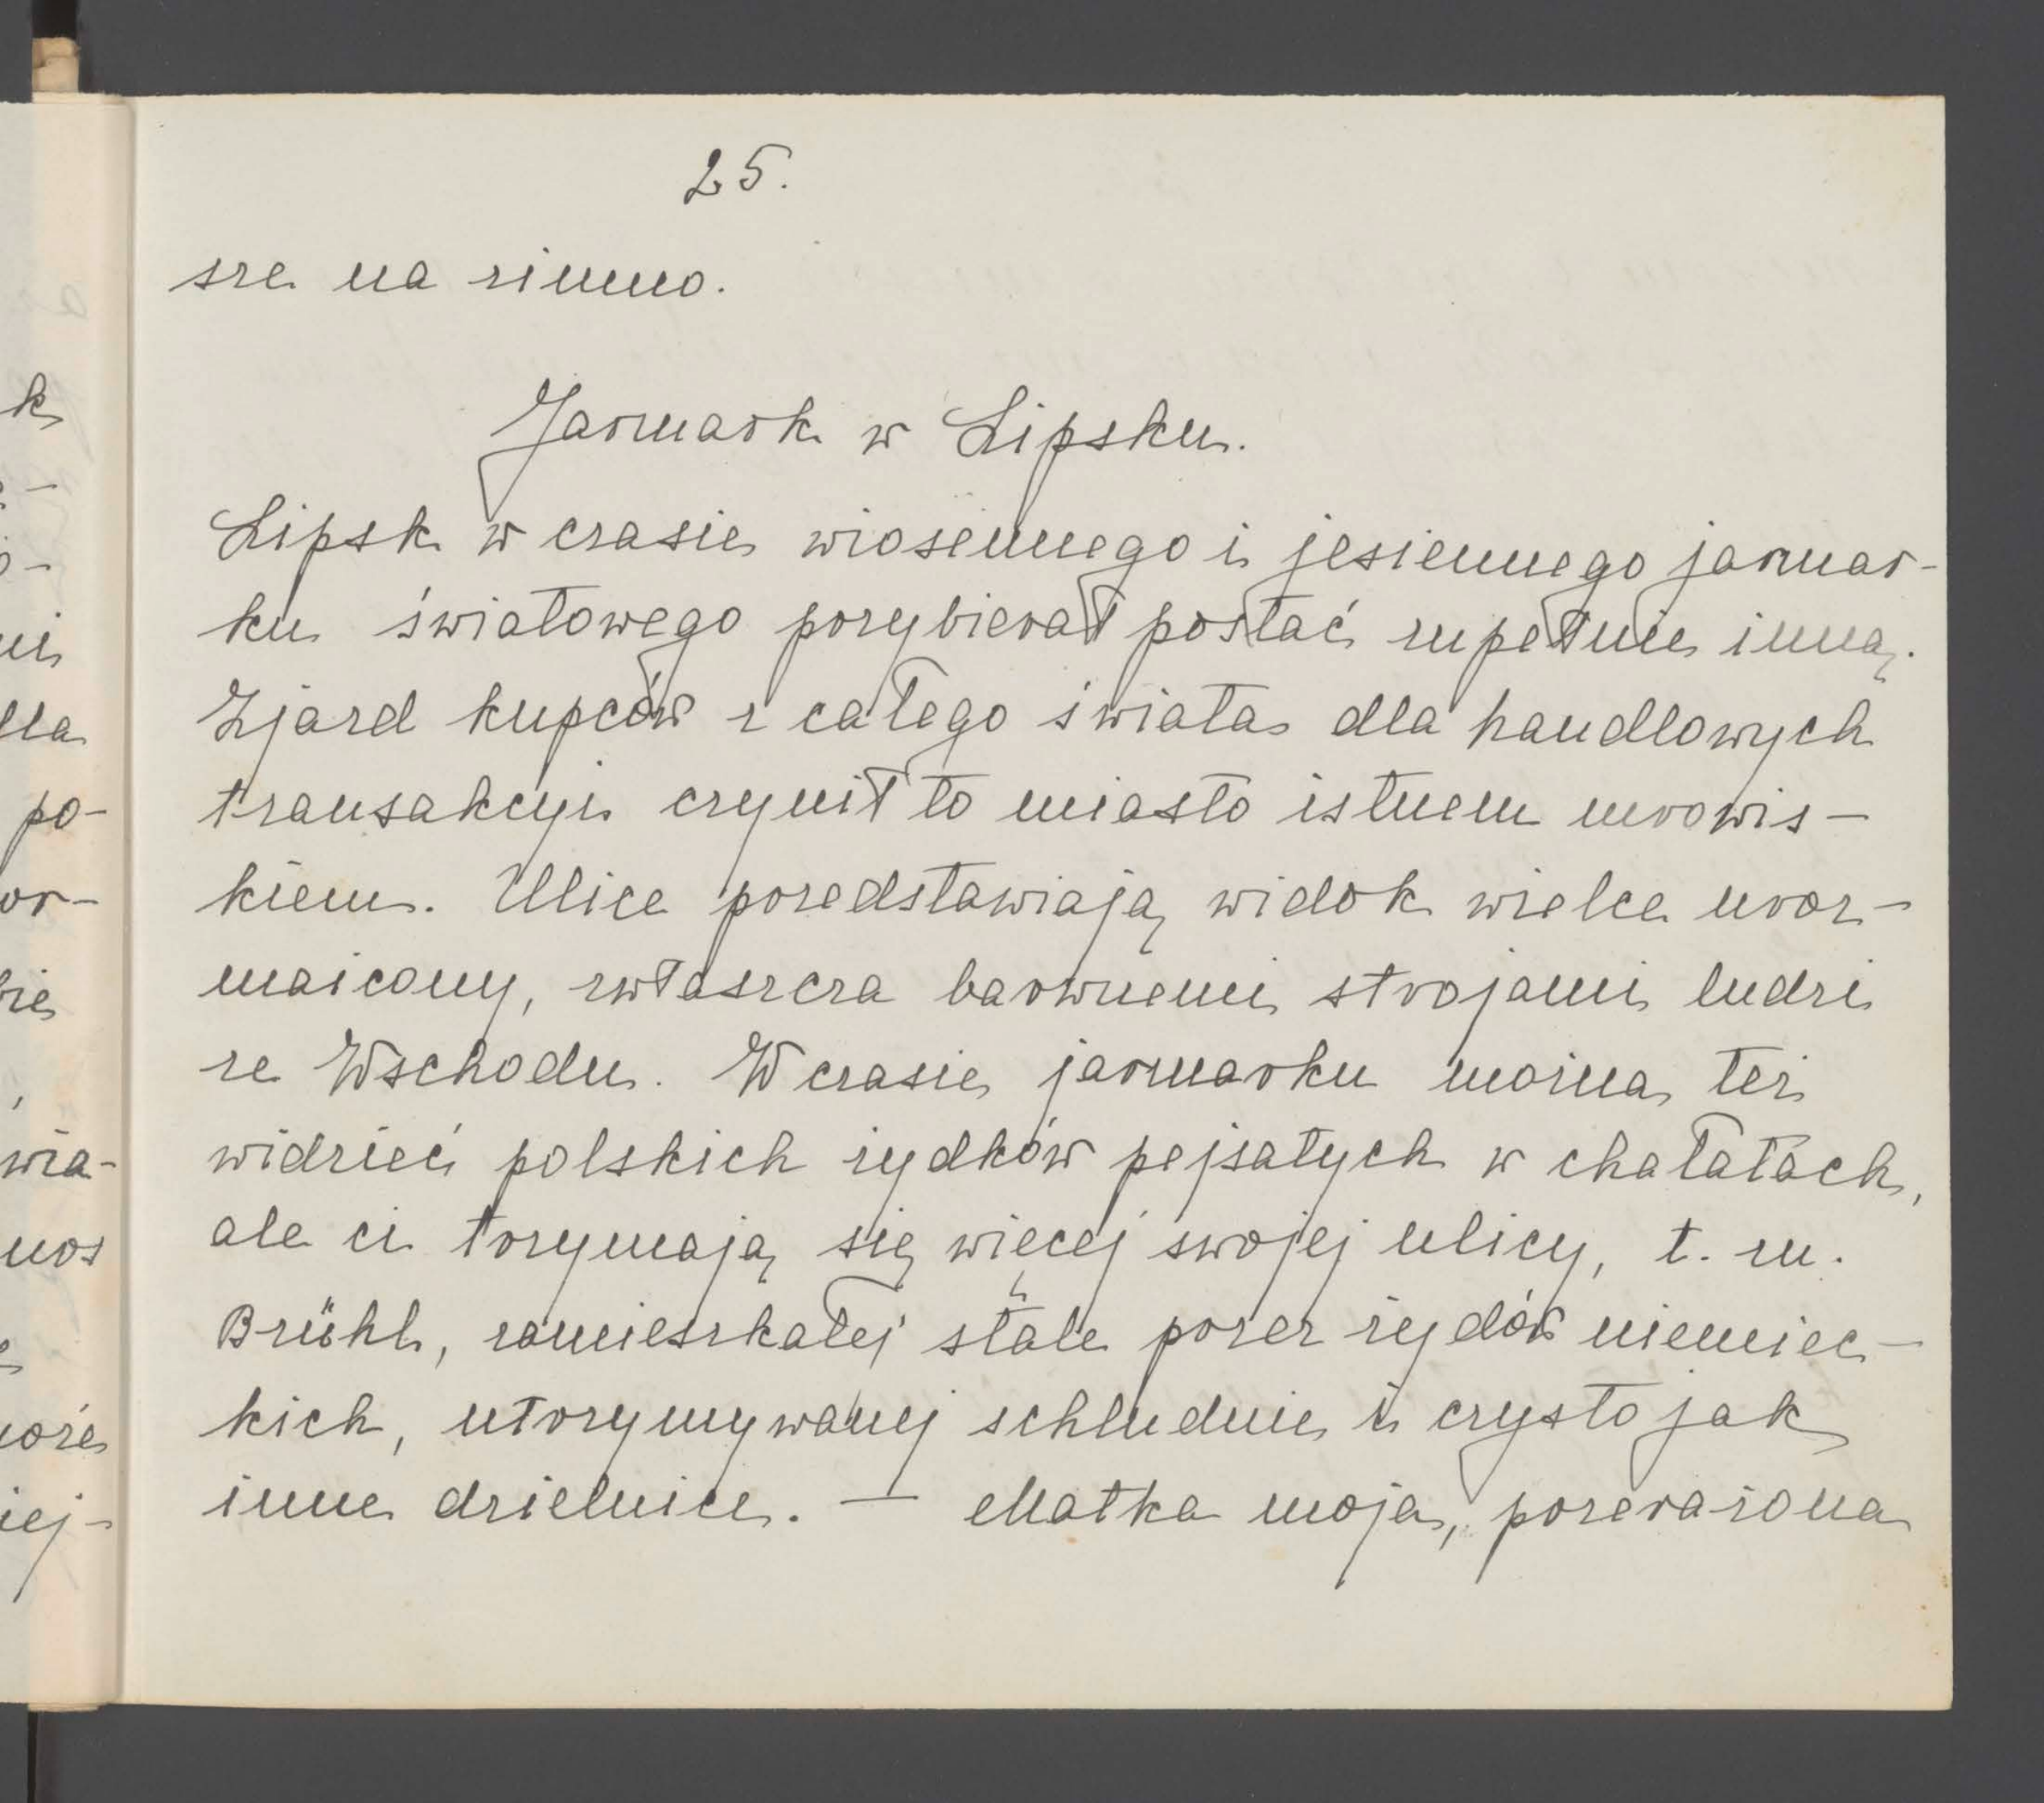 25.
sze na zimno.
Jarmark w Lipsku.
Lipsk w czasie wiosennego i jesiennego jarmar-
ku światowego przybierał postać zupełnie inną.
Zjazd kupców z całego świata dla handlowych
transakcyi czynił to miasto istnem mrowis-
kiem. Ulice przedstawiają widok wielce uroz-
maicony, zwłaszcza barwnemi strojami ludzi
ze Wschodu. W czasie jarmarku można też
widzieć polskich żydków pejsatych w chałatach,
ale ci trzymają się więcej swojej ulicy, t. zn.
Brühl, zamieszkałej stale przez żydów niemiec-
kich, utrzymywanej schludnie i czysto jak
inne dzielnice. — Matka moja, przerażona
k
-
-
ni
dla
po-
or-
bie
,
wia-
nos
może
iej-